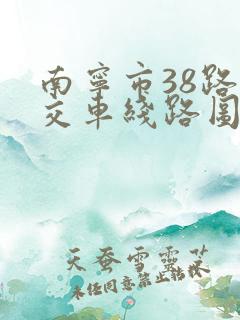 南寧市38路
交車綫路圖
天蚕雪靈芝
未经同意禁止转载